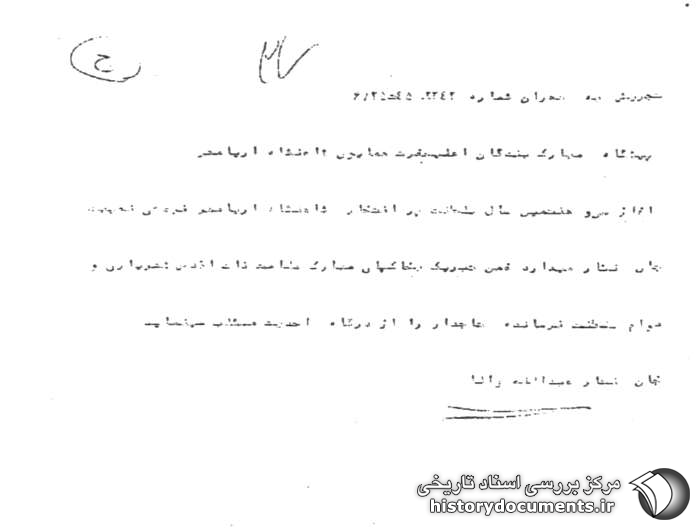 ح
۲۷
تهران شماره ۲۳۴۲
پیشگاه مبارک بندگان اعلیحضرت همایون شاهنشاه آریامهر
آغاز سی و هفتمین سال سلطنت پر افتخار شاهنشاه آریامهر فرصتی
جان نثار میدارد ضمن تبریک بخاکپای مبارک سلامت ذات اقدس شهریاری و
دوام سلطنت فرمانده تاجدار را از درگاه احدیت مسئلت مینماید
جان نثار عبدالله والا
مرکز بررسی اسناد تاریخی
historydocuments.ir